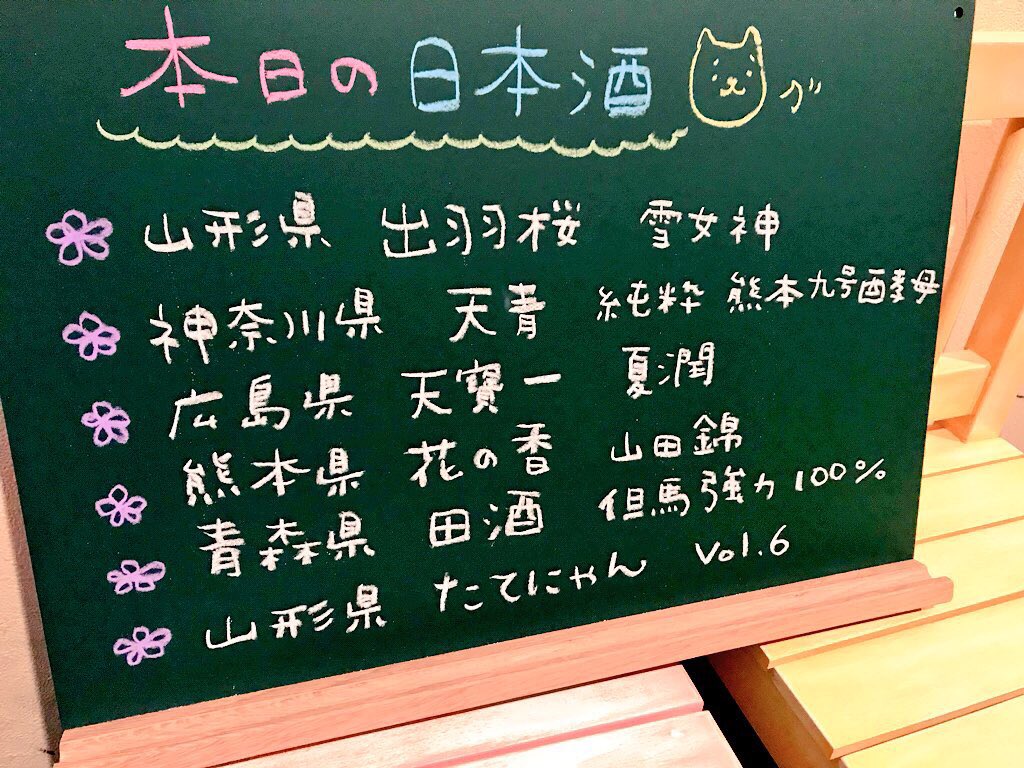 本日の日本酒 が
山形県 出羽桜 雪女神
神奈川県 天青 純粋 熊本九号酵母
広島県 天寶一 夏潤
熊本県 花の香 山田錦
青森県 田酒 但馬強力100%
山形県 たてにゃん Vol.6